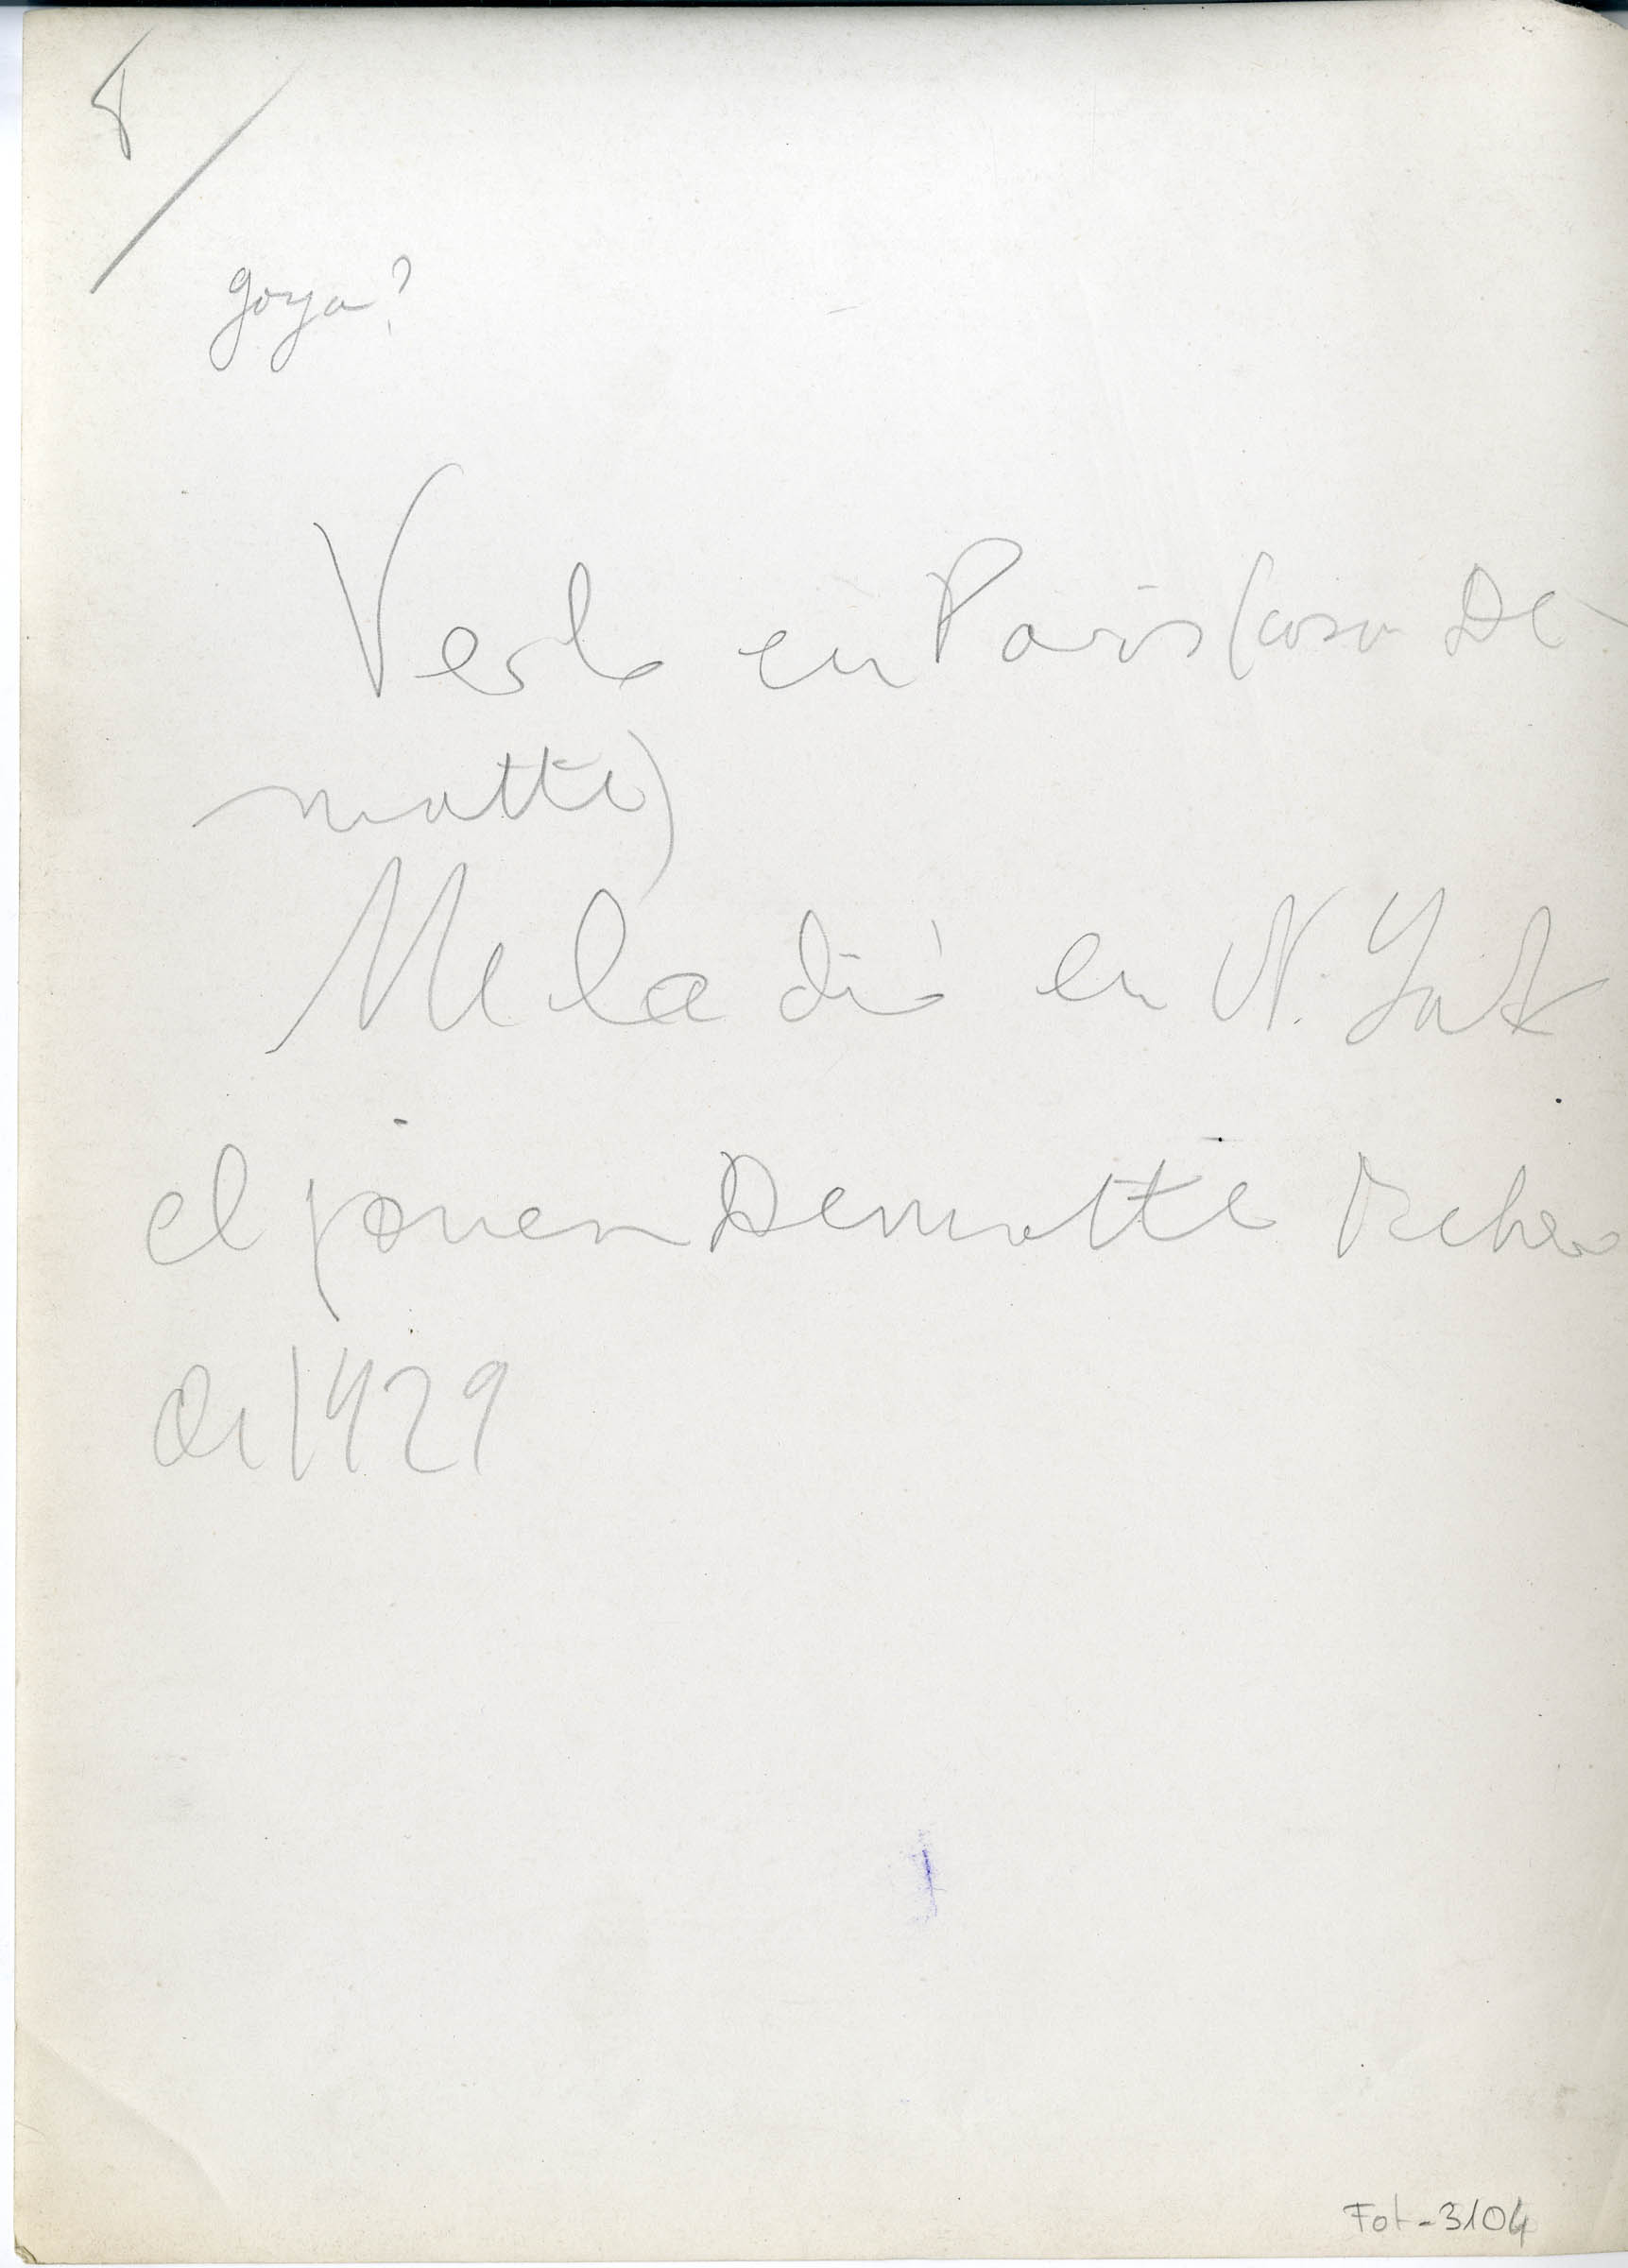 8
goya?
Verlo en Paris (casa De-
motte)
Me la dió en N. York
el joven Demotte Febrero
de 1929
Fot-3104